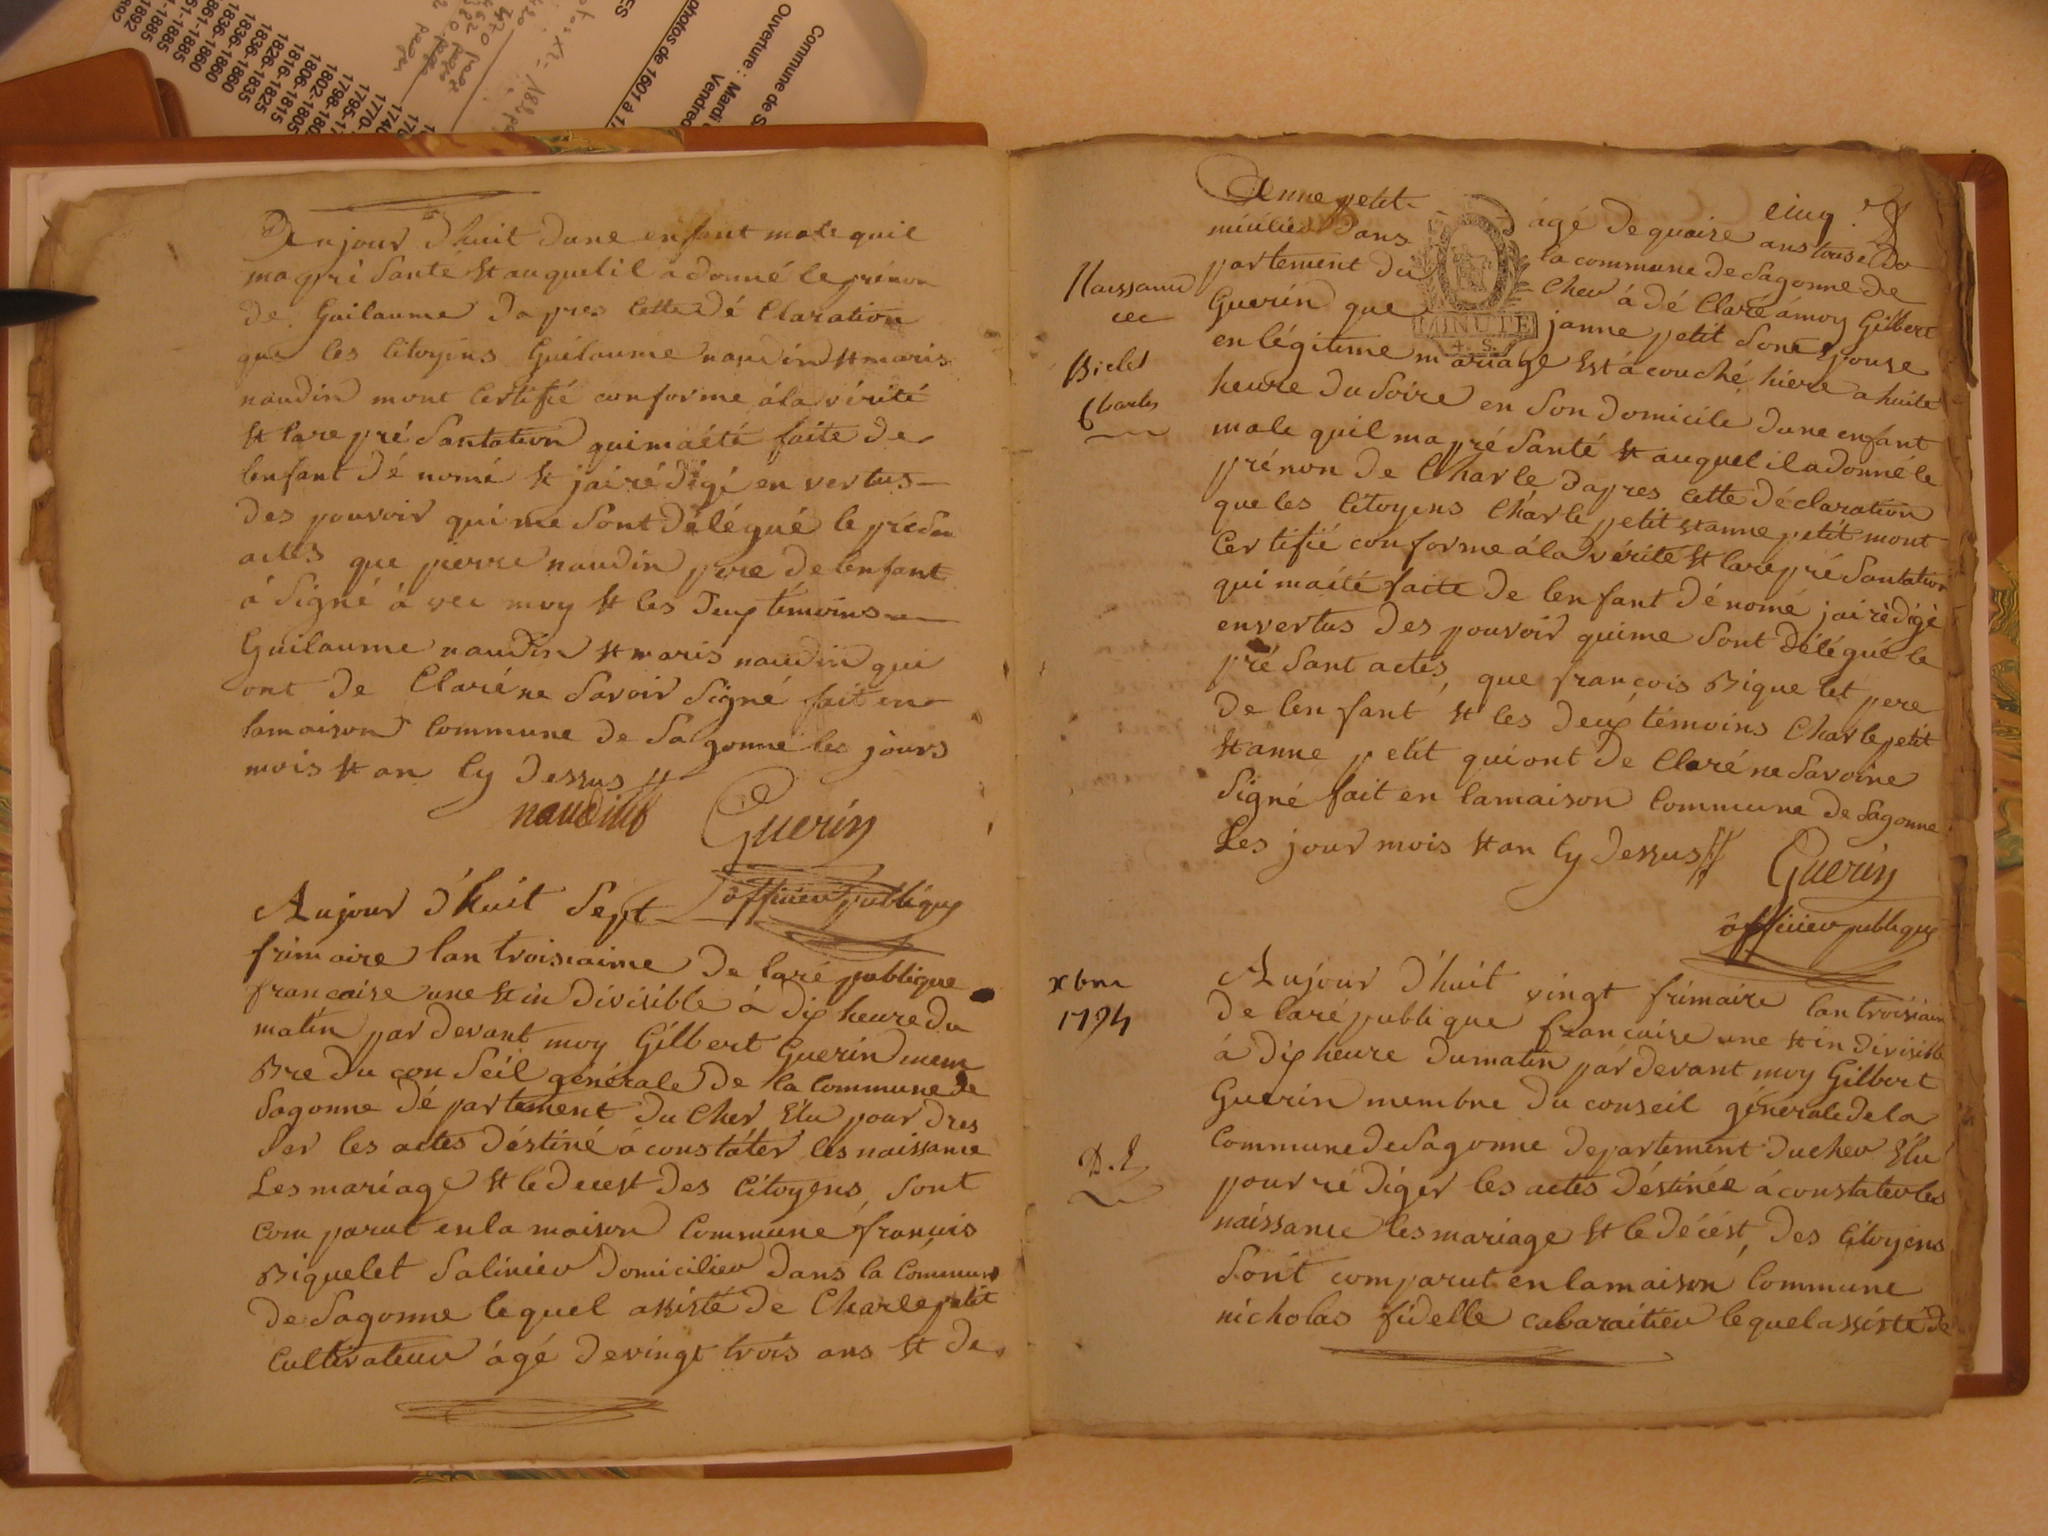 Commune de S
Ouverture : Mardi
Vendred
photos de 1601 à 1
ES
1892
1-1885
51-1885
1861-
1836-1860
1836-1860
1826-1835
1816-1825
1806-1815
1802-1805
1798-180
1795-17
1770-
1740
170
pages
Aujour d'huit dune enfant male quil
ma pré santé et auquel il a donné le prénon
de Guilaume dapres cette dé Claration
que les citoyins Guilaume naudin et maris
naudin mont certifié conforme à la vérité
et la re pré santation qui m'a été faite de
lenfant dé nomé et jai rédigé en vertus
des pouvoir qui me sont délégué le présen
actes que pierre naudin pere de lenfant
à signé à vec moy et les deux témoins
Guilaume naudin et maris naudin qui
ont de Claré ne savoir signé fait en
lamaison commune de Sagonne les jours
mois et an cy dessus
naudin Guerin
officier publique
Aujour d'huit sept
frimaire lan troisiaime de laré publique
francaise une et in divisible à dix heure du
matin par devant moy Gilbert Guerin mem
bre du con seil générale de la commune de
Sagonne dé partement du Cher Elu pour dres
ser les actes déstiné à constater les naissance
Les mariage et le decest des citoyens sont
com parut en la maison commune francois
Biquelet salinier domicilier dans la commune
de Sagonne lequel assisté de Charle petit
cultivateur agé de vingt trois ans et de
cinq
Anne petit agé de quaise ans tous deu
miciliés dans la commune de Sagonne de
partement du Cher à dé Claré à moy Gilbert
Guerin que janne petit son Epouse
MINUTE
4. S.
en légitime mariage est à couché hiere a huite
heure du soire en son domicile dune enfant
male quil ma pré santé et auquel il a donné le
prénon de Charle dapres cette déclaration
que les citoyens Charle petit et anne petit mont
certifié conforme à la vérité et la re pré santation
qui m'a été faite de len fant dé nomé jai rédigé
en vertus des pouvoir qui me sont délégué le
pré sant actes, que françois Bique let pere
de len fant et les deux témoins Charle petit
et anne petit qui ont de Claré ne savoire
signé fait en lamaison commune de Sagonne
Les jour mois et an cy dessus
Guerin
officier publique
Naissance
Charles
xbre
1794
Aujour d'huit vingt frimaire lan troisiaim
de laré publique francaise une et in divisible
à dix heure du matin par devant moy Gilbert
Guerin membre du conseil générale de la
commune de Sagonne departement du cher Elu
pour ré diger les actes déstinée à constater les
naissance les mariage et le décést, des citoyens
sont comparut en lamaison commune
nicholas fidelle cabaraitier lequel assisté de